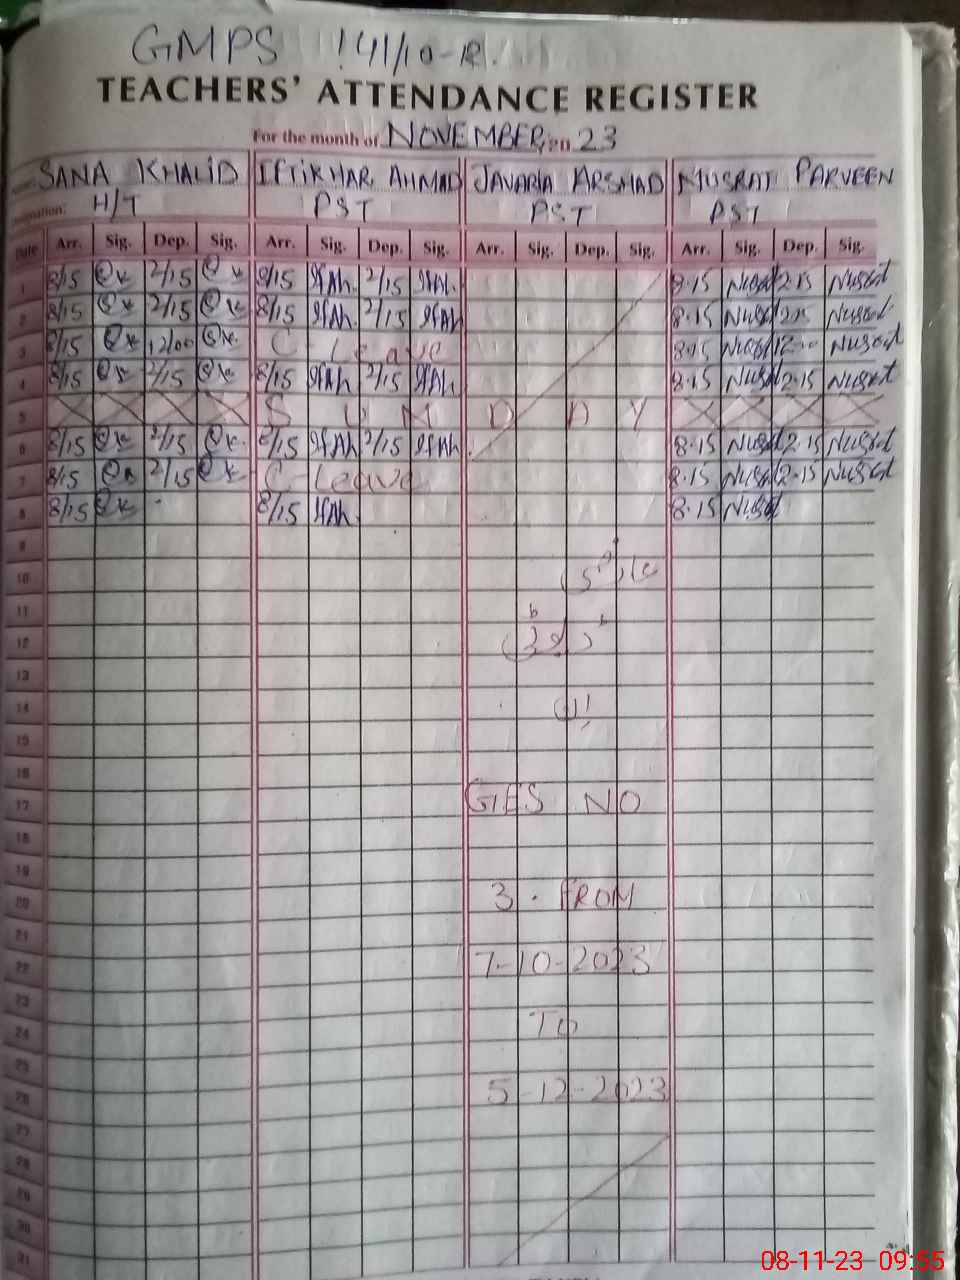 GMPS 141/10-R.
TEACHERS' ATTENDANCE REGISTER
For the month of NOVEMBER, 20 23
SANA KHALID IFTIKHAR AHMAD JAVARIA ARSHAD NUSRAT PARVEEN
H/T PST PST PST
Date Arr. Sig. Dep. Sig. Arr. Sig. Dep. Sig. Arr. Sig. Dep. Sig. Arr. Sig. Dep. Sig.
1 8/15 2/15 8/15 IfAh. 2/15 IfAh. 8.15 Nusrat 2.15 Nusrat
2 8/15 2/15 8/15 IfAh. 2/15 IfAh 8.15 Nusrat 2.15 Nusrat
3 8/15 12/00 C - Leave 8.15 Nusrat 12.00 Nusrat
4 8/15 2/15 8/15 IfAh 2/15 IfAh 8.15 Nusrat 2.15 Nusrat
5 S U N D A Y
6 8/15 2/15 8/15 IfAh 2/15 IfAh. 8.15 Nusrat 2.15 Nusrat
7 8/15 2/15 C - Leave 8.15 Nusrat 2.15 Nusrat
8 8/15 8/15 IfAh. 8.15 Nusrat
9
10
11
12
13
14
15
16
17 GES NO
18
19
20 3 . FROM
21
22 7-10-2023
23
24 TO
25
26 5-12-2023
27
28
29
30
31
08-11-23 09:55